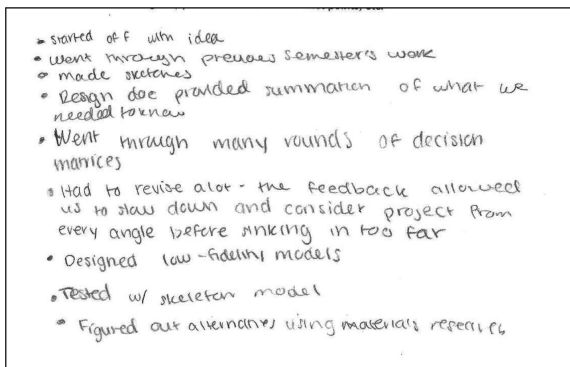 • started off with idea
• Went through previous semester's work
• made sketches
• Design doc provided summation of what we
needed to know
• Went through many rounds of decision
matrices
• Had to revise alot - the feedback allowed
us to slow down and consider project from
every angle before sinking in too far
• Designed low-fidelity models
• Tested w/ skeleton model
• Figured out alternatives using materials research